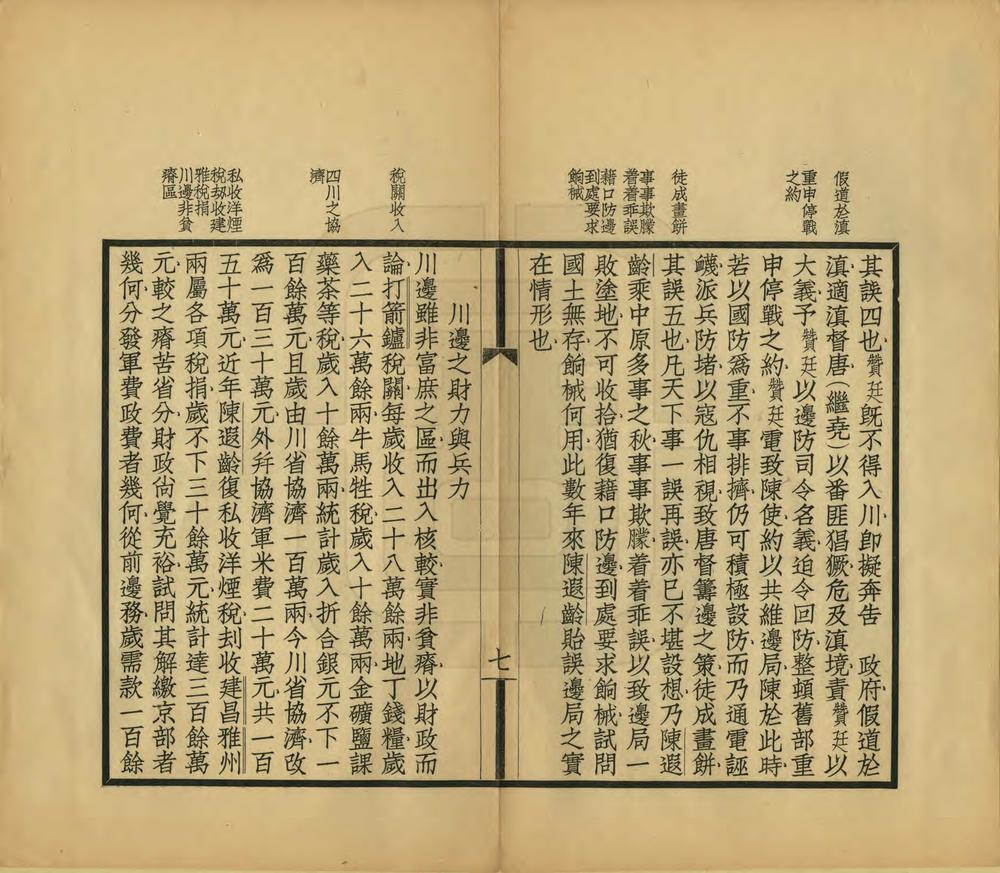 假道於滇
重申停戰
之約
徒成畫餅
事事欺朦
着着乖誤
藉口防邊
到處要求
餉械
其誤四也贊廷既不得入川卽擬奔告　政府假道於
滇適滇督唐(繼堯)以番匪猖獗危及滇境責贊廷以
大義予贊廷以邊防司令名義迫令回防整頓舊部重
申停戰之約贊廷電致陳使約以共維邊局陳於此時
若以國防爲重不事排擠仍可積極設防而乃通電誣
衊派兵防堵以寇仇相視致唐督籌邊之策徒成畫餅
其誤五也凡天下事一誤再誤亦已不堪設想乃陳遐
齡乘中原多事之秋事事欺朦着着乖誤以致邊局一
敗塗地不可收拾猶復藉口防邊到處要求餉械試問
國土無存餉械何用此數年來陳遐齡貽誤邊局之實
在情形也
七
稅關收入
四川之協
濟
私收洋煙
稅刼收建
雅稅捐
川邊非貧
瘠區
川邊之財力與兵力
川邊雖非富庶之區而出入核較實非貧瘠以財政而
論打箭鑪稅關每歲收入二十八萬餘兩地丁錢糧歲
入二十六萬餘兩牛馬牲稅歲入十餘萬兩金礦鹽課
藥茶等稅歲入十餘萬兩統計歲入折合銀元不下一
百餘萬元且歲由川省協濟一百萬兩今川省協濟改
爲一百三十萬元外幷協濟軍米費二十萬元共一百
五十萬元近年陳遐齡復私收洋煙稅刦收建昌雅州
兩屬各項稅捐歲不下三十餘萬元統計達三百餘萬
元較之瘠苦省分財政尙覺充裕試問其解繳京部者
幾何分發軍費政費者幾何從前邊務歲需款一百餘